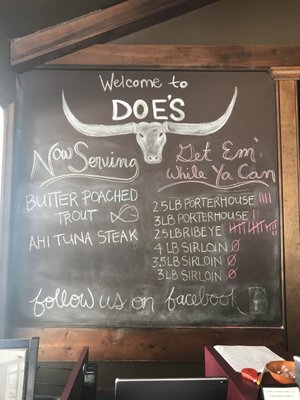 Welcome to
DOE'S
Now Serving
BUTTER POACHED
TROUT
AHI TUNA STEAK
Get Em'
While Ya Can
2.5 LB PORTERHOUSE
3 LB PORTERHOUSE
2.5 LB RIBEYE
4 LB SIRLOIN Ø
3.5 LB SIRLOIN Ø
3 LB SIRLOIN Ø
follow us on facebook